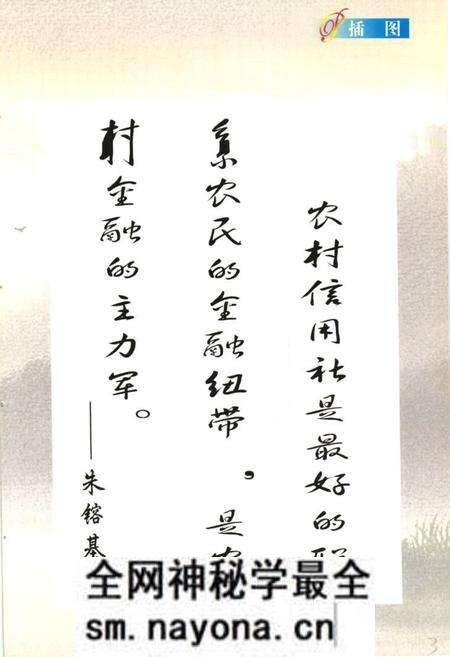 插图
农村信用社是最好的联
系农民的金融纽带，是农
村金融的主力军。
——朱镕基
全网神秘学最全
sm.nayona.cn
3